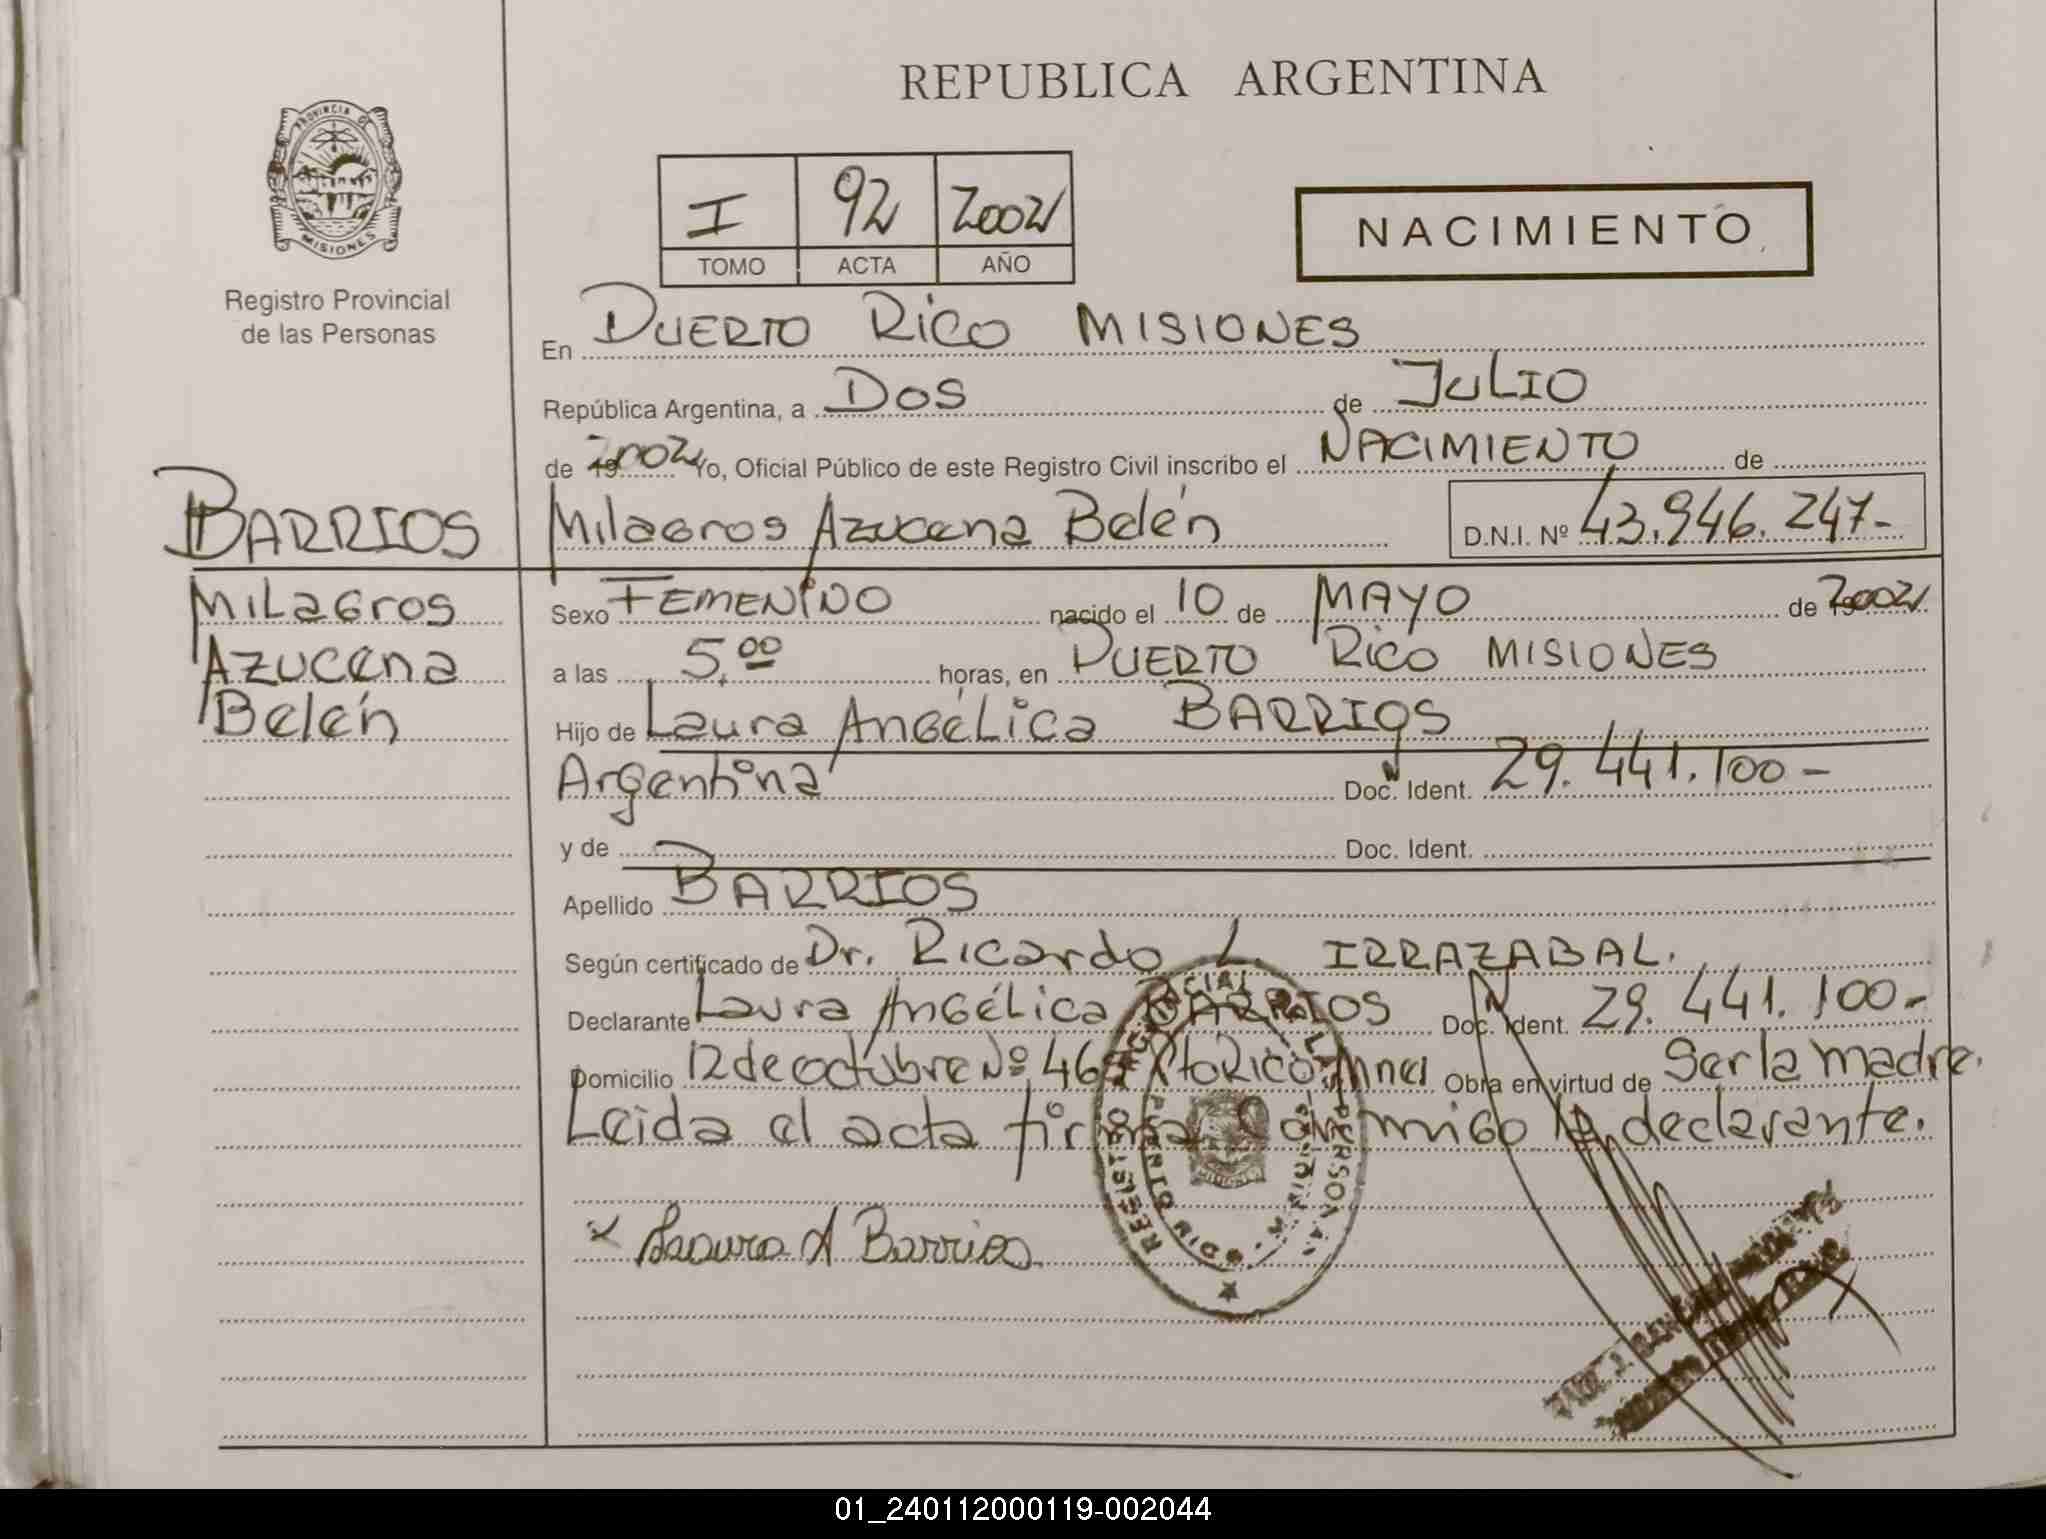 REPUBLICA ARGENTINA
PROVINCIA DE
MISIONES
Registro Provincial
de las Personas
I 92 2002
TOMO ACTA AÑO
NACIMIENTO
En PUERTO RICO MISIONES
República Argentina, a DOS de JULIO
de 2002 Yo, Oficial Público de este Registro Civil inscribo el NACIMIENTO de
BARRIOS Milagros Azucena Belén D.N.I. Nº 43.946.247-
Milagros Sexo FEMENINO nacido el 10 de MAYO de 2002
Azucena a las 5,00 horas, en PUERTO RICO MISIONES
Belén Hijo de Laura Angélica BARRIOS
Argentina Doc. Ident. 29.441.100-
y de Doc. Ident.
Apellido BARRIOS
Según certificado de Dr. Ricardo L. IRRAZABAL.
Declarante Laura Angélica BARRIOS Doc. Ident. 29.441.100-
Domicilio 12 de octubre Nº Pto Rico Mnes Obra en virtud de Ser la madre.
Leida el acta firma conmigo la declarante.
x Laura A Barrios
PUERTO RICO
MISIONES
01_240112000119-002044